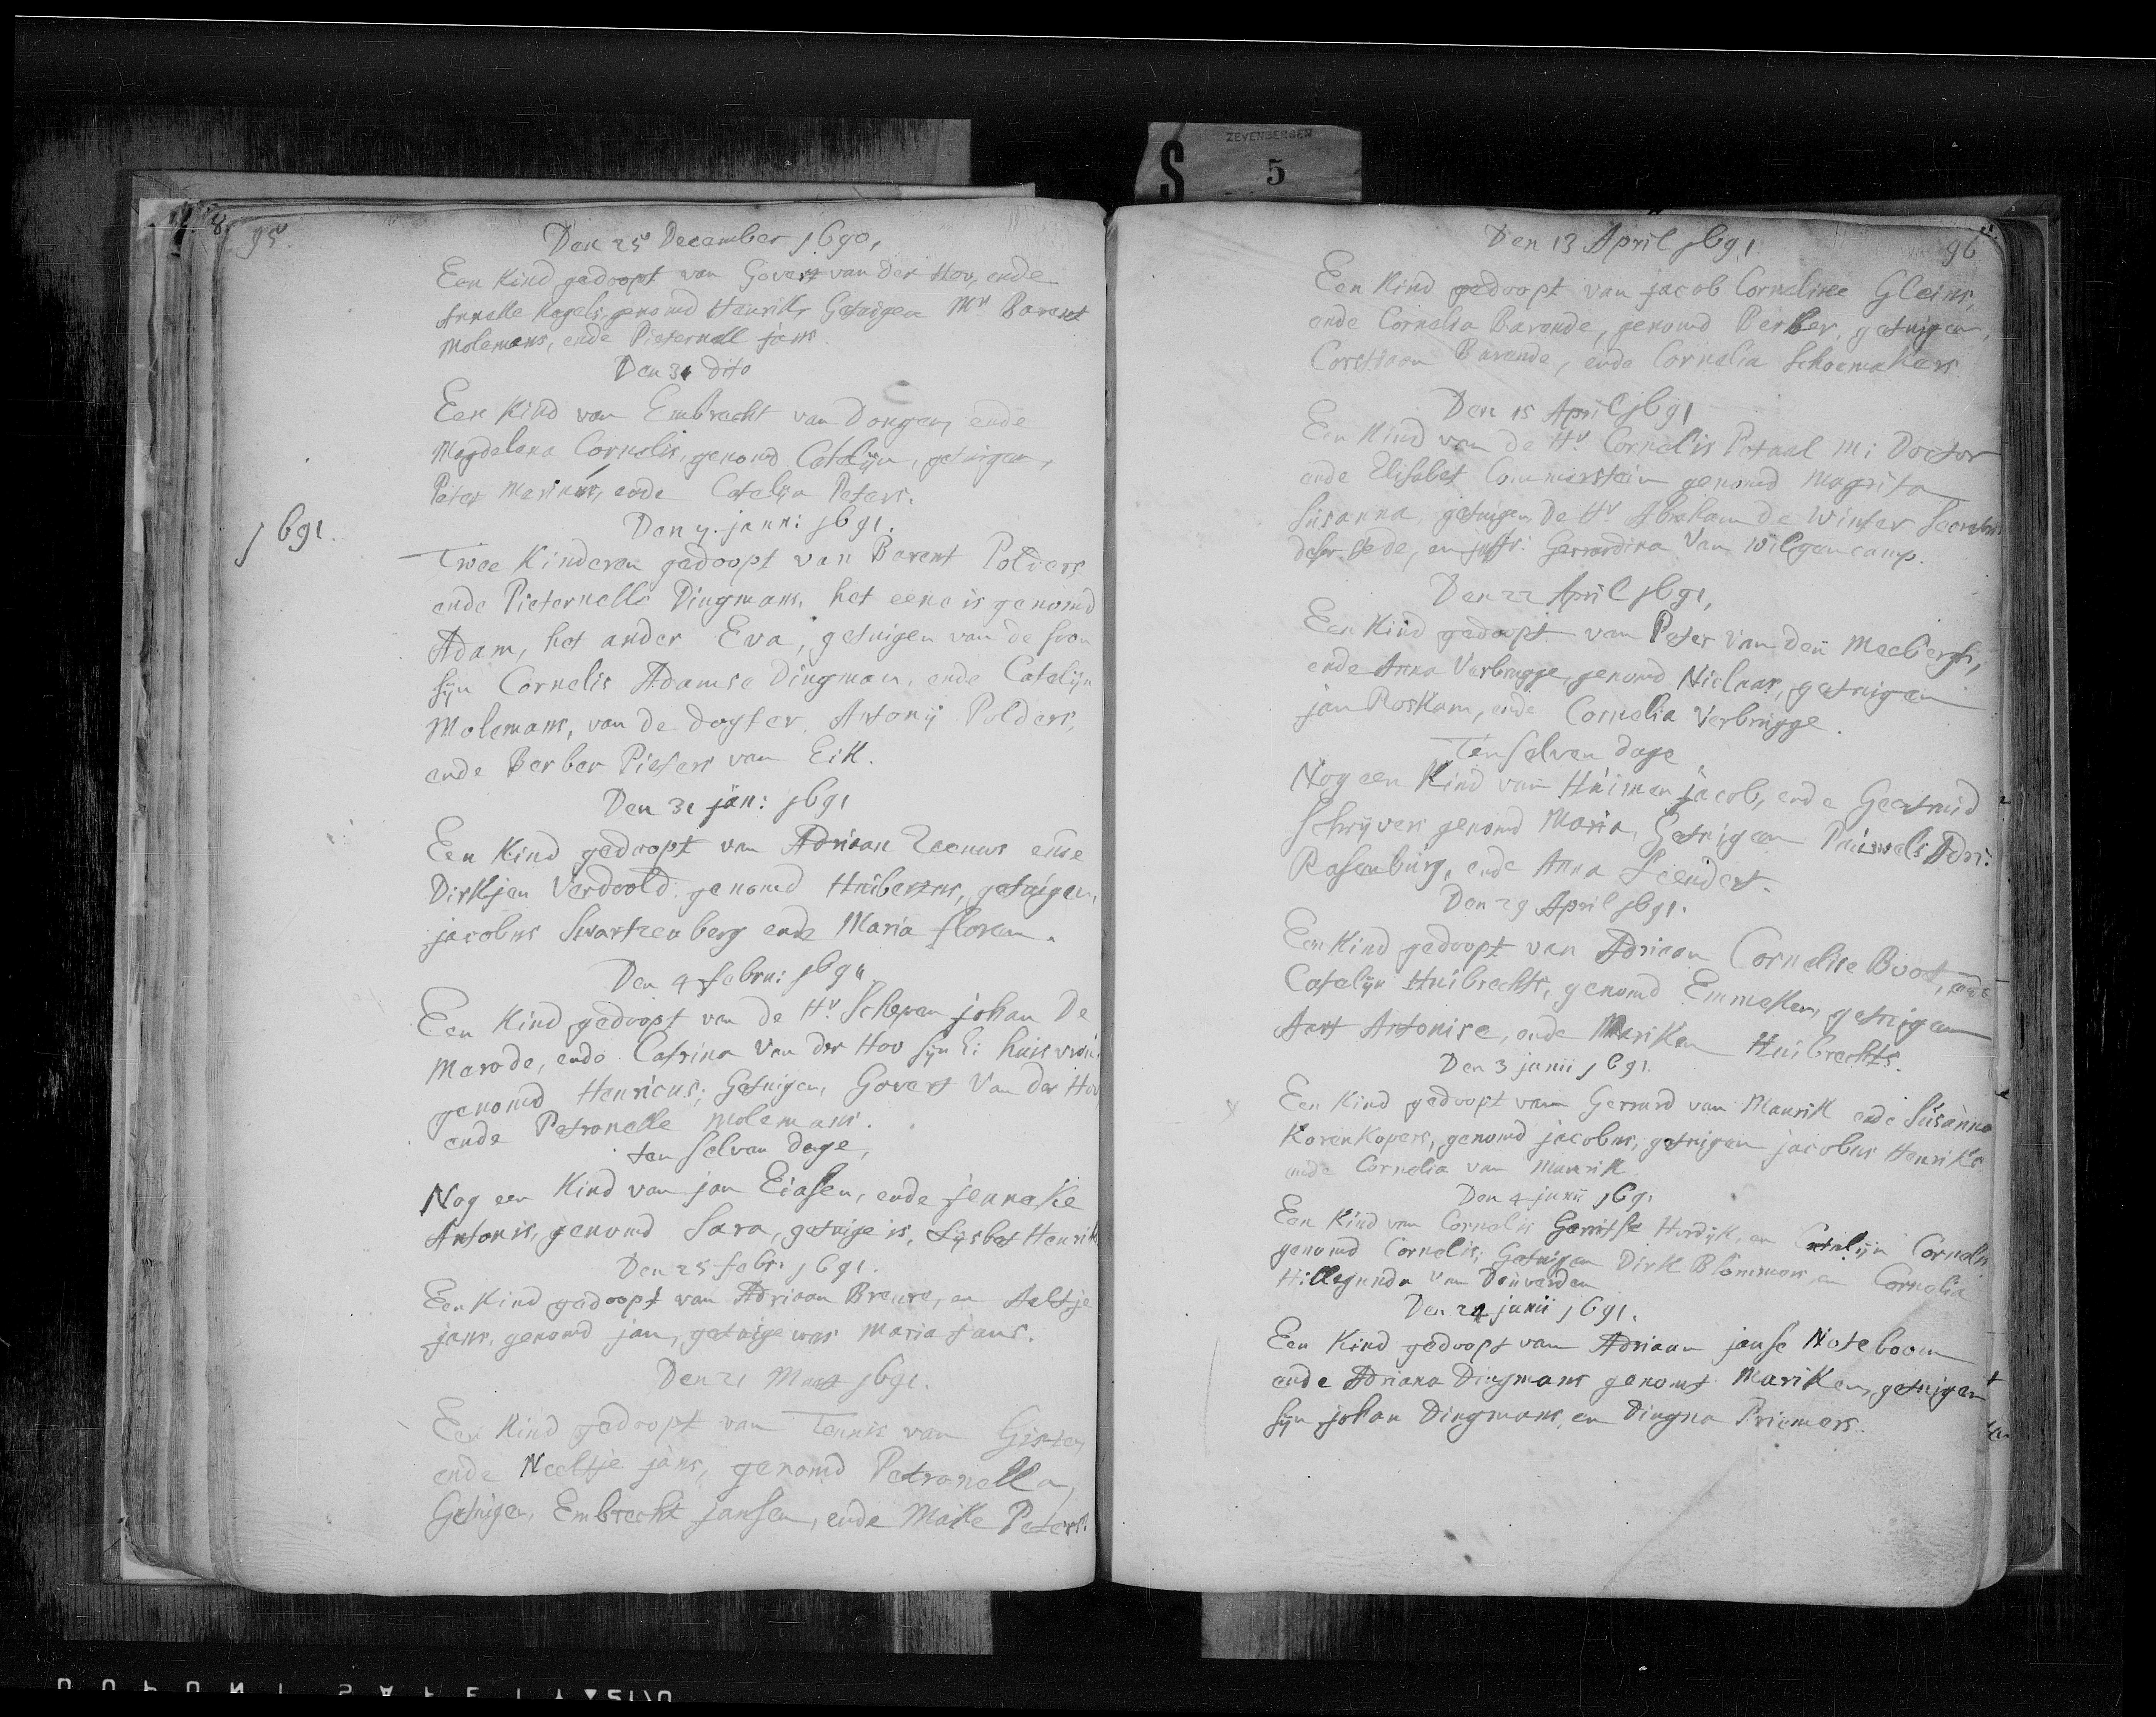 ZEVENBERGEN
S 5
95.
Den 25 December 1690,
Een Kind gedoopt van Govert van der Hov, ende
Anneke Kogels, genomd Henrik, Getuigen Mr Barent
Molemans, ende Pieternell jans.
Den 31 dito
Een Kind van Embrecht van Dongen, ende
Magdalena Cornelis, genomd Catelijn, getuigen,
Peter Marinus, ende Catelijn Peters.
1691.
Den 7. janu: 1691.
Twee Kinderen gedoopt van Barent Polders
ende Pieternelle Dingmans, het eene is genomd
Adam, het ander Eva, getuigen van de soon
sijn Cornelis Adamse Dingman, ende Catelijn
Molemans, van de dogter, Antonij Polders,
ende Berber Pieters van Eik.
Den 31 jan: 1691
Een Kind gedoopt van Adriaan Zeeuws ende
Dirkjen Verdoold genomd Huibertus, getuigen,
jacobus Swartzenberg ende Maria floren.
Den 4 febru: 1691
Een Kind gedoopt van de Hr. Schepen johan De
Merode, ende Catrina Van der Hov sijn E: huisvrou:
genomd Henricus; Getuigen, Govert Van der Hov
ende Petronelle Molemans.
ten selven dage,
Nog een Kind van jan Eiasen, ende jenneke
Antonis, genomd Sara, getuige is, Lijsbet Henrik
Den 25 febr: 1691.
Een Kind gedoopt van Adriaan Breure, en Aeltje
jans, genomd jan, getuige was Maria jans.
Den 21 Maert 1691.
Een Kind gedoopt van Teunis van Gisten,
ende Neeltje jans, genomd Petronella,
Getuigen, Embrecht jansen, ende Maike Peters.
96
Den 13 April 1691.
Een Kind gedoopt van jacob Cornelisse Gleins,
ende Cornelia Barende, genomd Berber, getuigen,
Corstiaan Barende, ende Cornelia Schoemakers
Den 15 April 1691
Een Kind van de Hr. Cornelis Potaal M: Doctor
ende Elisabet Commerstein genomd Magrita
Susanna, getuigen, De Hr Abraham De Winter Secretris
deser stede, en juffr: Gerrardina Van Wilgencamp.
Den 22 April 1691,
Een Kind gedoopt van Peter Van den Meebergh,
ende Anna Verbrugge, genomd Niclaas, getuigen
jan Roskam, ende Cornelia Verbrugge.
Ten selven dage
Nog een Kind van Huiman jacob, ende Geertruid
Schrijvers genomd Maria, Getuigen Pauwels Adri:
Rosenburg, ende Anna Leendert.
Den 29 April 1691.
Een Kind gedoopt van Adriaan Cornelise Boot, ende
Catelijn Huibrechts, genomd Emmeken, getuigen
Aart Antonise, ende Mariken Huibrechts.
Den 3 junii 1691.
Een Kind gedoopt van Gerrard van Maurik ende Susanna
Korenkopers, genomd jacobus, getuigen jacobus Henriks
ende Cornelia van Maurik
Den 4 junii 1691
Een Kind van Cornelis Gerritse Hordijk, en Catelijn Cornelis
genomd Cornelis; Getuigen Dirk Blommers, en Cornelia
Hillegunda Van
Den 24 junii 1691.
Een Kind gedoopt van Adriaan janse Noteboom
ende Adriana Dingmans genomt Mariken, getuigen
sijn johan Dingmans, en Dingna Priemers.